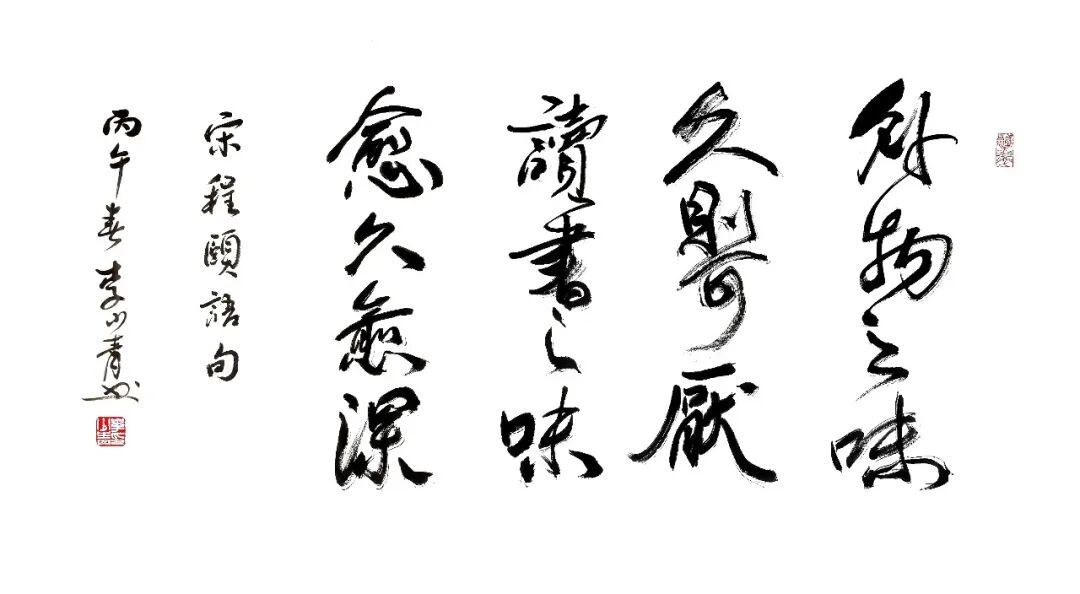 外物之味
久則可厭
讀書之味
愈久愈深
宋程頤語句
丙午春李小青书